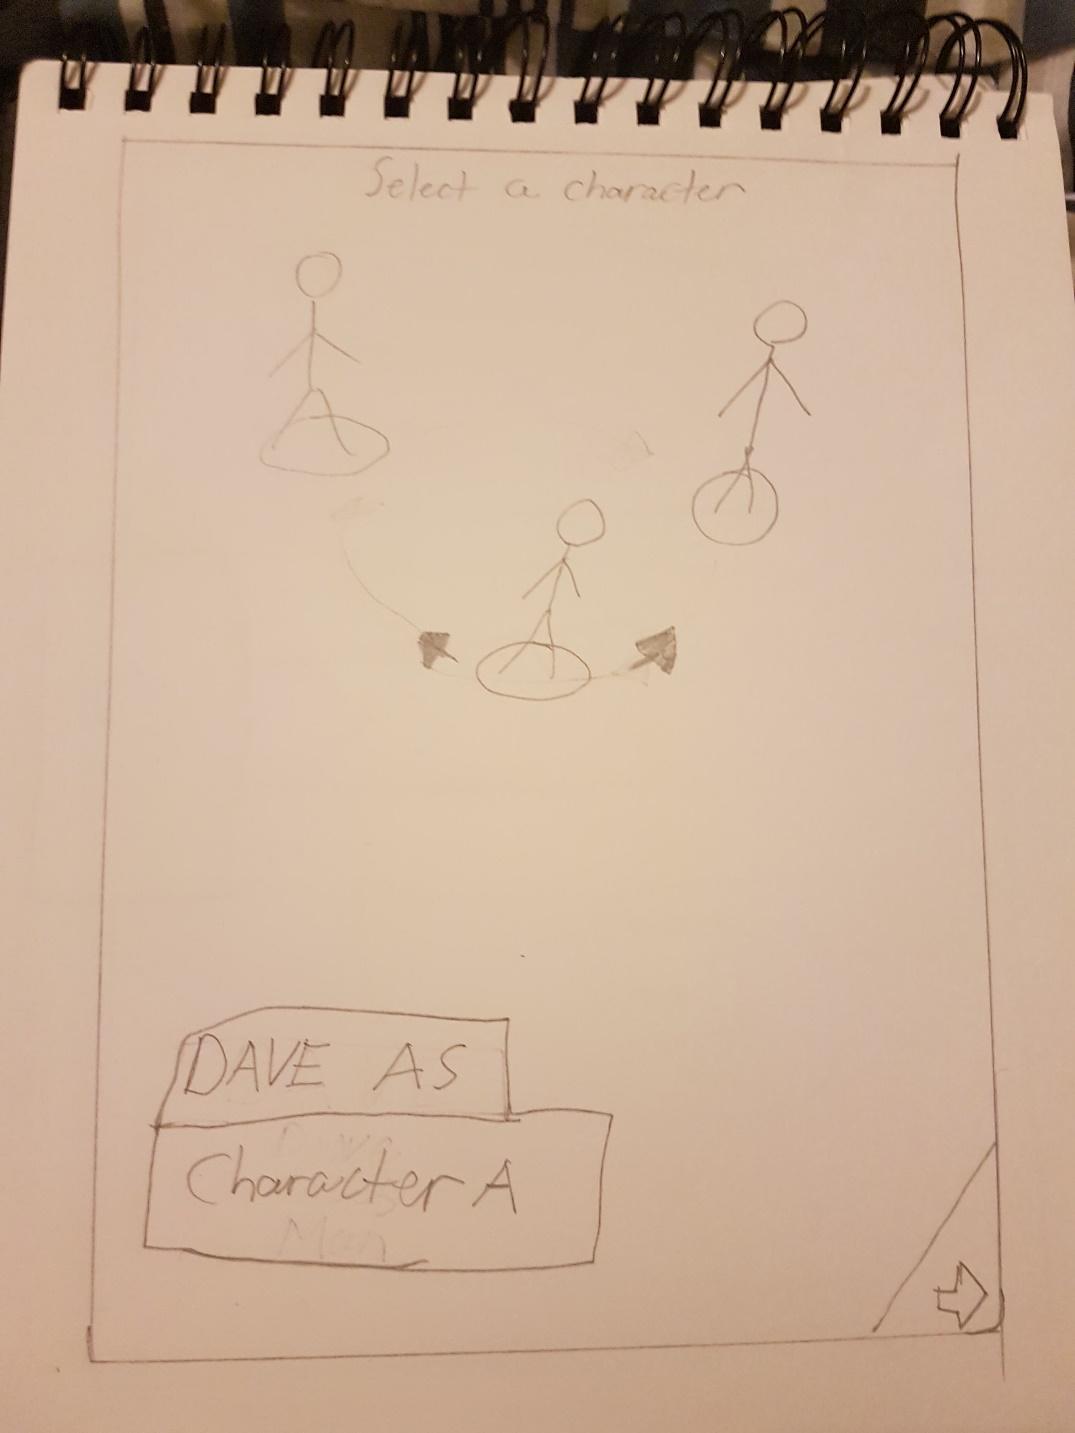 Select a character
DAVE AS
Character A